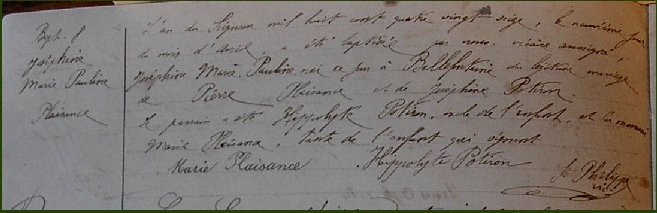 Bapt. f
Joséphine
Marie Pauline
Plaisance
L'an du Seigneur mil huit cent quatre vingt seize, le neuvième jour
du mois d'avril, a été baptisée par nous, vicaire soussigné,
Joséphine Marie Pauline née ce jour à Bellefontaine du légitime mariage
de Pierre Plaisance et de Joséphine Potiron
Le parrain a été Hippolyte Potiron, oncle de l'enfant, et la marraine
Marie Plaisance, tante de l'enfant qui signent
Marie Plaisance Hippolyte Potiron